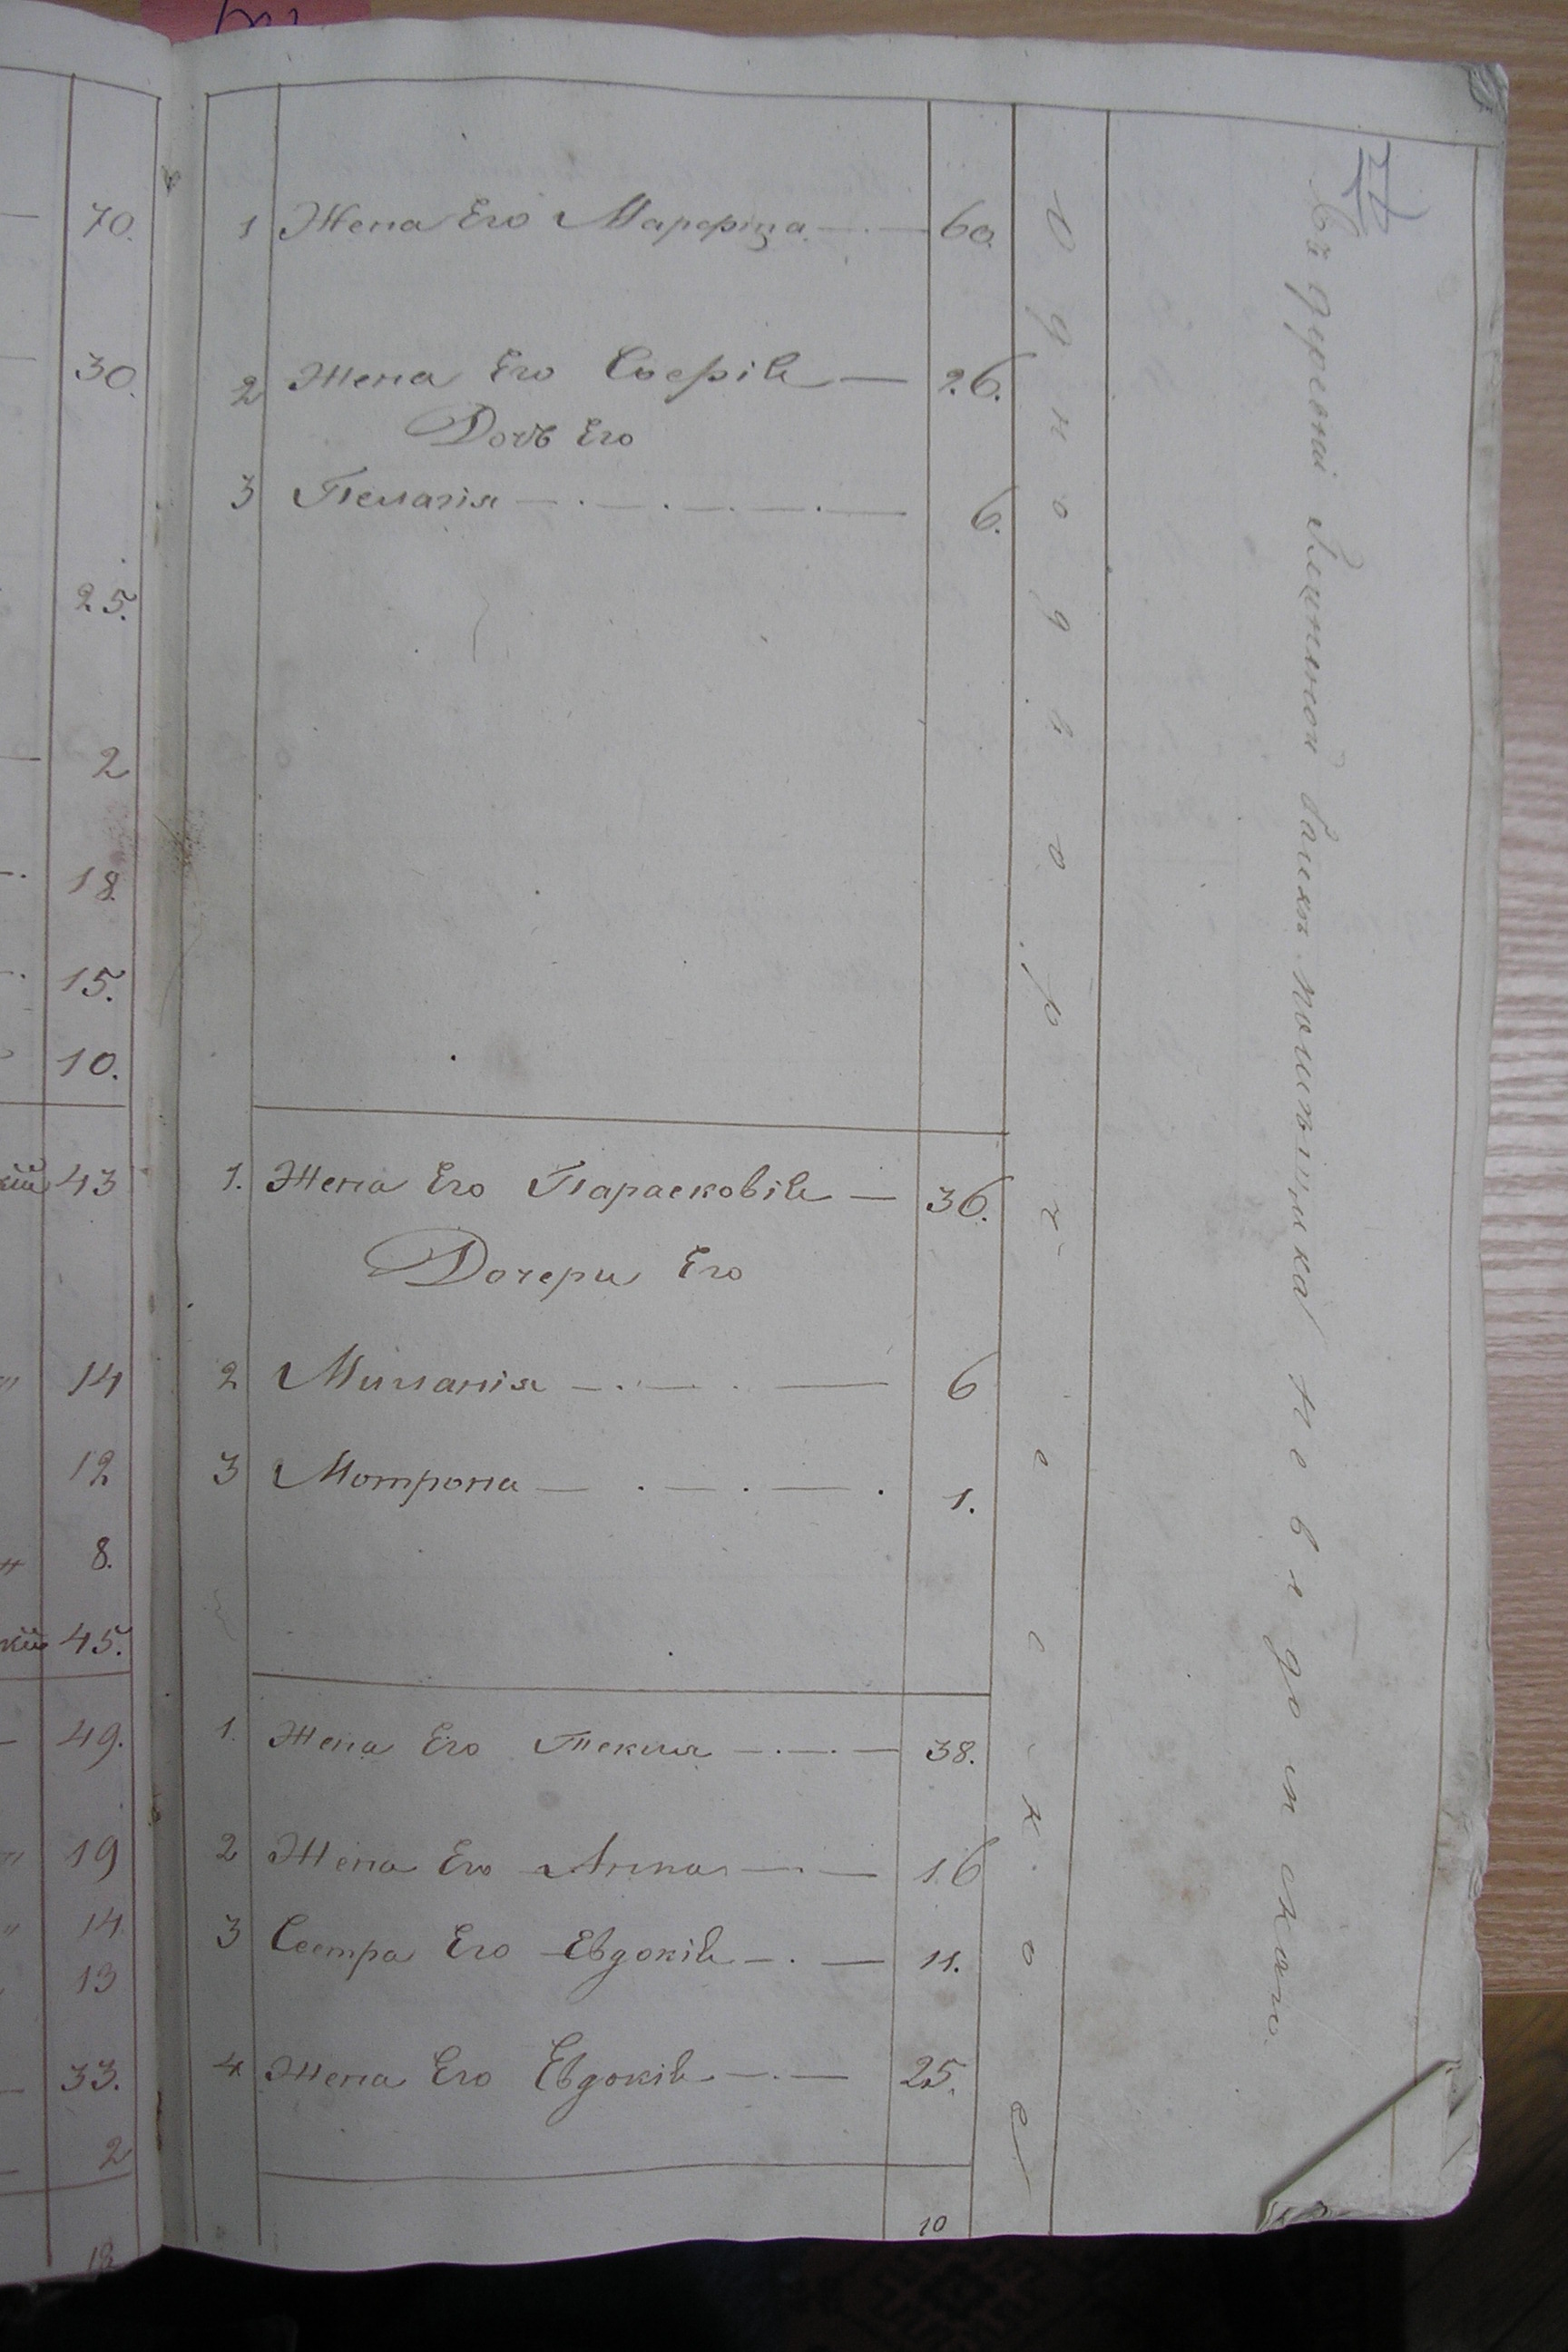 17
70.
30.
25.
2
18
15.
10.
кій 43
14
12
8.
кій 45.
49.
19
14.
13
33.
2
18
1 Жена Его Марфрита — . — 60.
2 Жена Его Софія — 26.
Дочь Его
3 Пелагія — . — . — . — . — 6.
1. Жена Его Парасковія — 36.
Дочери Его
2 Миланія — . — . — 6
3 Мотрона — . — . — . 1.
1. Жена Его Текля — . — . — 38.
2 Жена Его Анна — . — 16
3 Сестра Его Евдокія — . — 11.
4 Жена Его Евдокія — . — 25.
10
Однодворческое
Въ деревни помѣщика